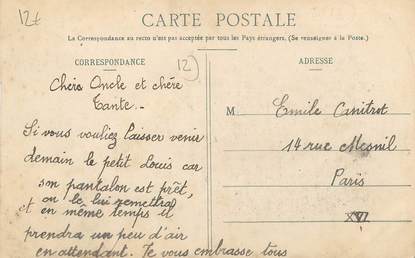 12f
CARTE POSTALE
La Correspondance au recto n'est pas acceptée par tous les Pays étrangers. (Se renseigner à la Poste.)
CORRESPONDANCE
12)
ADRESSE
Chère Oncle et chère
Tante.-
Si vous vouliez laisser venir
demain le petit Louis car
son pantalon est prêt,
on le lui remettrai
et en même temps il
prendra un peu d'air
en attendant. Je vous embrasse tous
M. Emile Canitrot
14 rue Mesnil
Paris
XVI